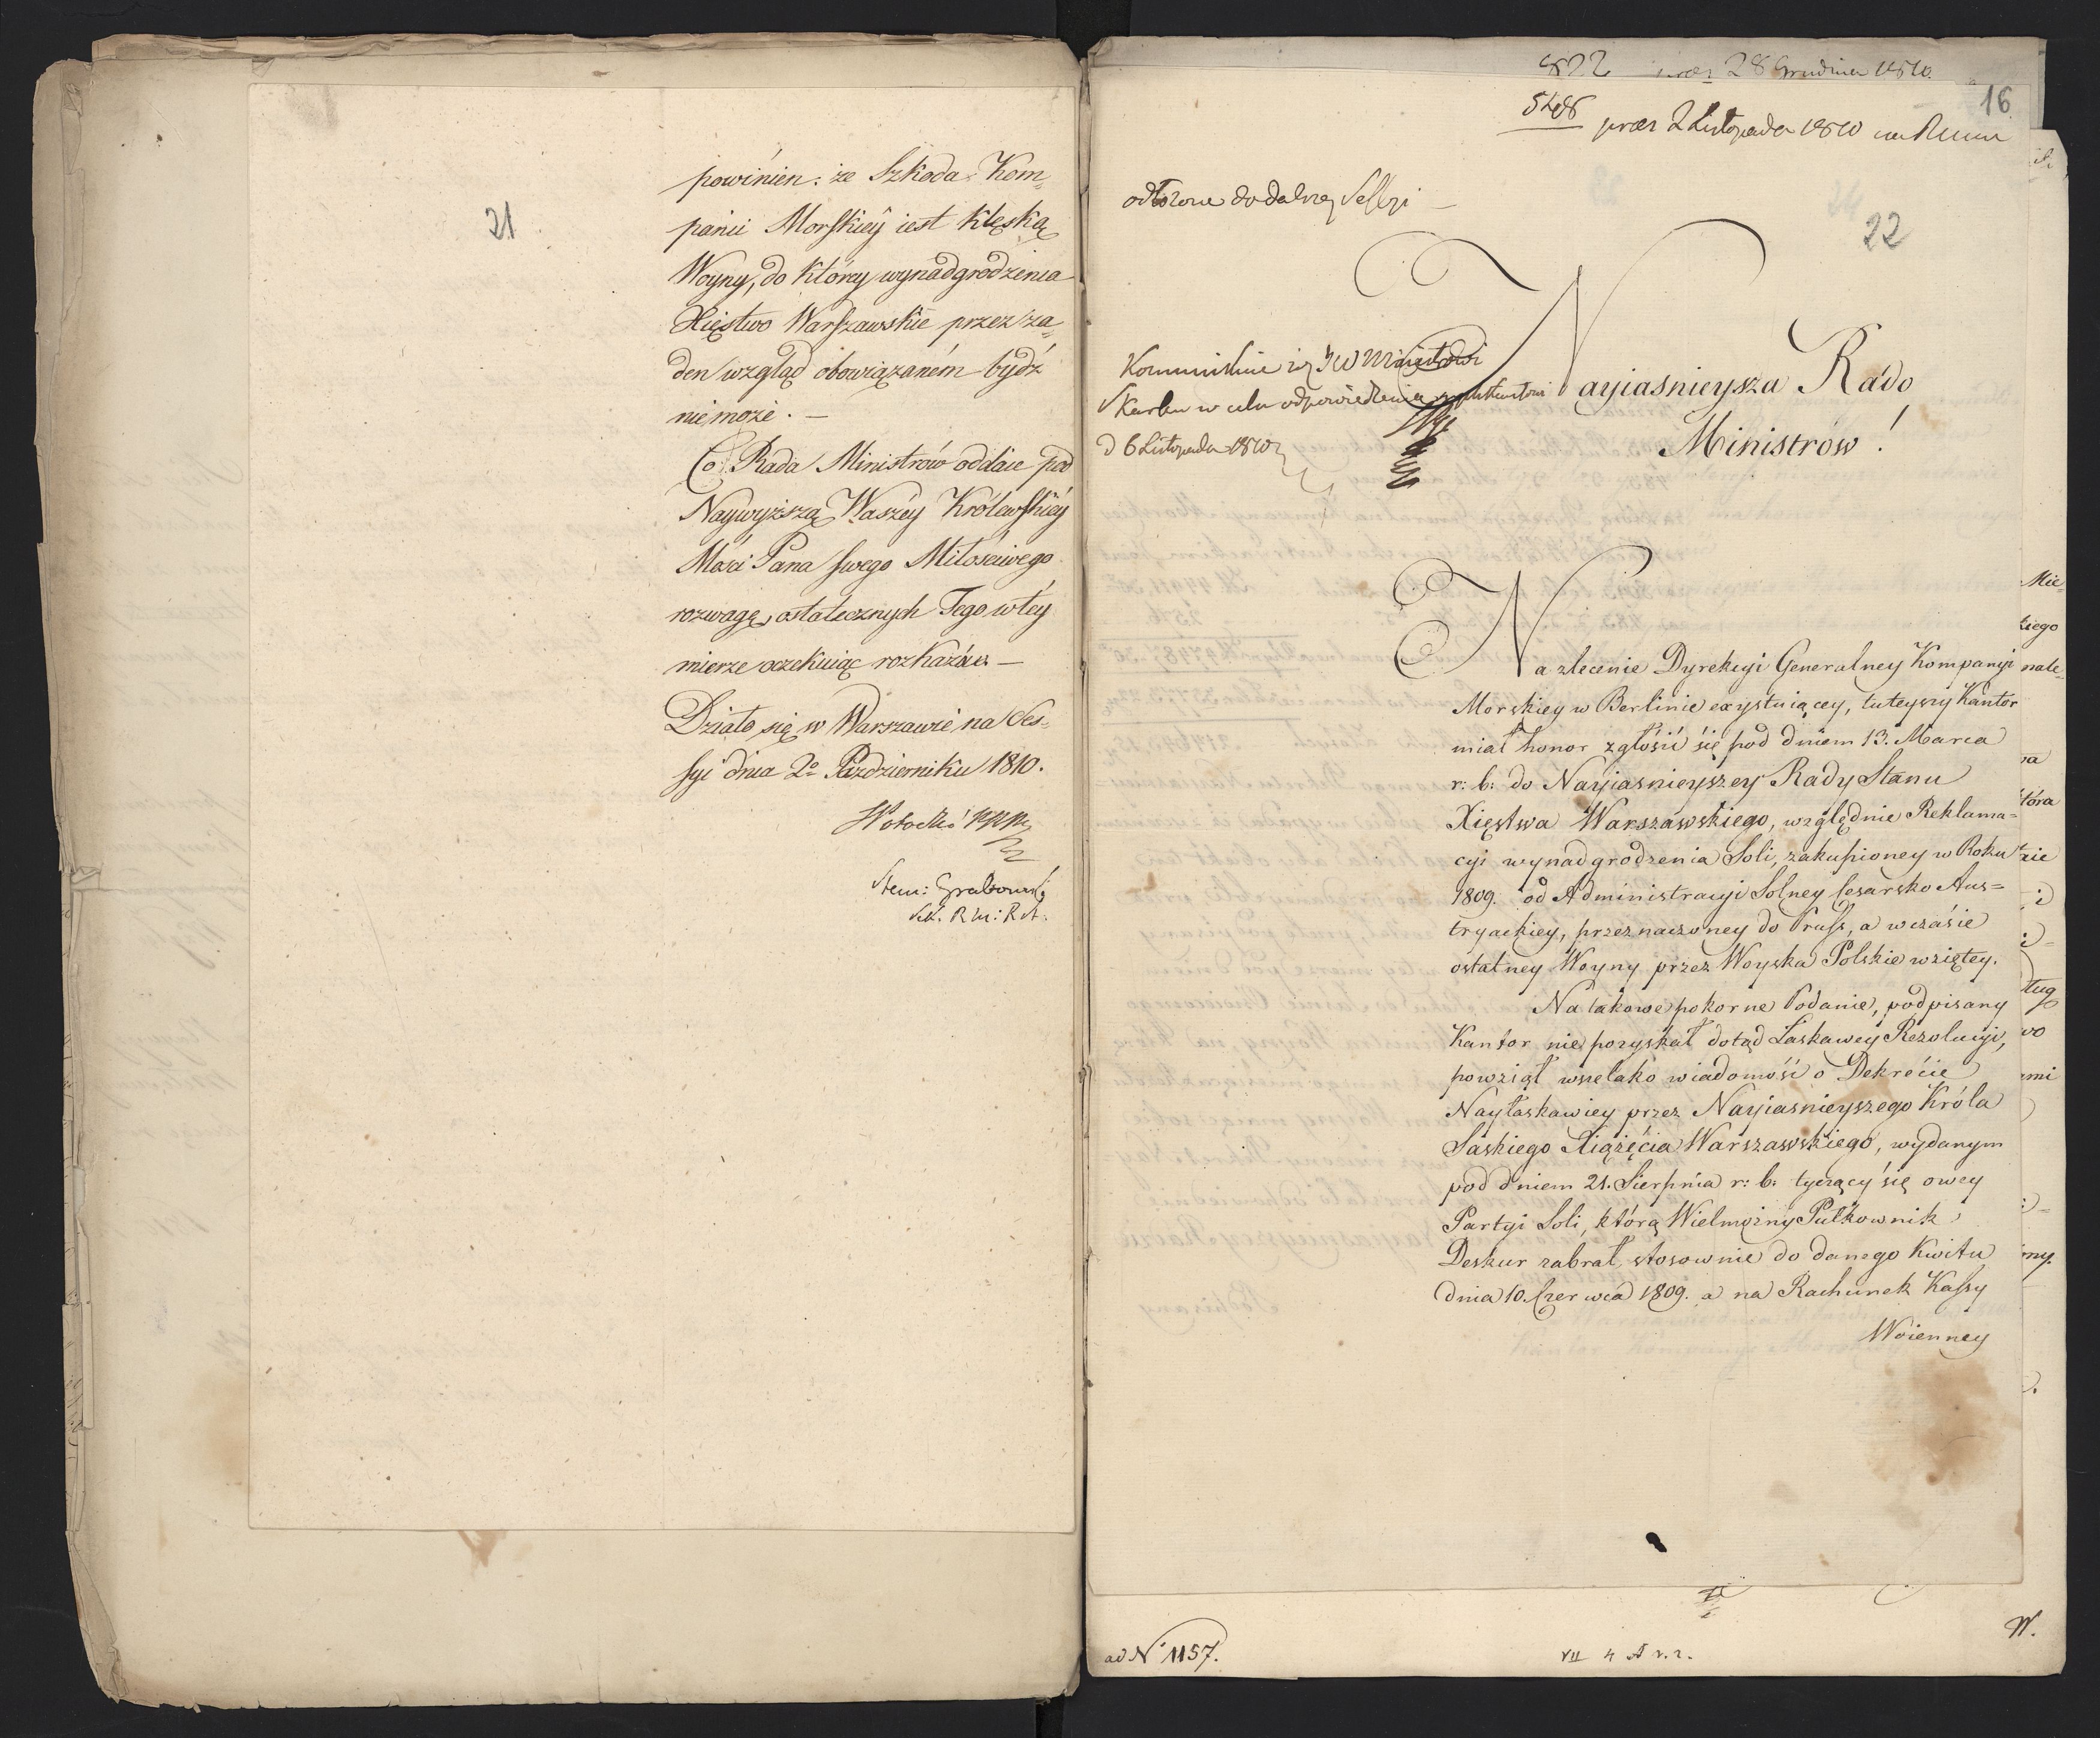 21
powinien: że Szkoda Kom=
panii Morskiey iest klęską
Woyny, do którey wynadgrodzenia
Xięstwo Warszawskie przez ża=
den wzgląd obowiązaném bydź
nie może. —
Co Rada Ministrów oddaie pod
Naywyższą Waszéy Królewskiéy
Mości Pana swego Miłościwego
rozwagę, ostatecznych Jego w téy
mierze oczekuiąc rozkazów. —
Działo się w Warszawie na Ses=
syi dnia 2º Października 1810.
Grabowski
822 præs 28 Grudnia 1810.
16
præs 2 Listopada 1810
odłożone do dalszej Sessyi —
22
Nayiasnieysza Rado
Ministrów!
Kommunikuie się JW Ministrowi
Skarbu w celu odpowiedzenia
d 6 Listopada 1810
Na zlecenie Dyrekcyi Generalney Kompanyi
Morskiey w Berlinie exystuiącey, tuteyszy Kantor
miał honor zgłosić się pod dniem 13. Marca
r: b: do Nayiasnieyszey Rady Stanu
Xięstwa Warszawskiego, względnie Reklama=
cyi wynadgrodzenia Soli, zakupioney w Roku
1809. od Administracyi Solney Cesarsko Aus=
tryackiey, przeznaczoney do Pruss, a w czasie
ostatney Woyny przez Woyska Polskie wziętey.
Na takowe pokorne Podanie, podpisany
Kantor nie pozyskał dotąd Łaskawey Rezolucyi,
powziął wszelako wiadomość o Dekrecie
Nayłaskawiey przez Nayiasnieyszego Króla
Saskiego Xiążęcia Warszawskiego, wydanym
pod dniem 21. Sierpnia r: b: tyczący się owey
Partyi Soli, którą Wielmożny Pułkownik
Deskur zabrał, stosownie do danego Kwitu
dnia 10. Czerwca 1809. a na Rachunek Kassy
Woienney
ad Nº 1157.
W.